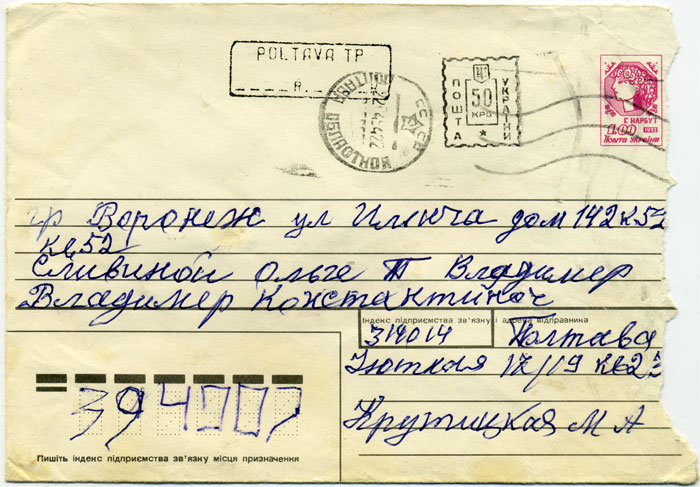 POLTAVA TP
R
ПОЛТАВА ОБЛПОЧТАМТ
СССР
ПОШТА
УКРАЇНИ
50
КРБ
Г. НАРБУТ
1.00 1992
Пошта України
гр Воронеж ул Илича дом 142к52
кв52
Сливиной Ольге Владимер
Владимер Констактинач
Індекс підприємства зв'язку і адреса відправника
314014 Полтава
Уютная 17/19 кв23
Крутицкая М А
394007
Пишіть індекс підприємства зв'язку місця призначення